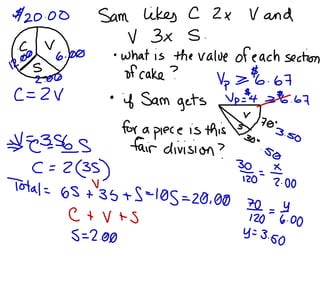 $20.00
Sam likes C 2x V and
V 3x S.
C V
12.00 6.00
S
2.00
• what is the value of each section
of cake?
Vp ≥ $6.67
C = 2V
• if Sam gets
Vp = $4 ≥ $6.67
V
S
70°
30°
3.50
.50
for a piece is this
fair division?
V = 3S
⇒ C = 6S
C = 2(3S)
30/120 = x/2.00
V
Total = 6S + 3S + S = 10S = 20.00
C + V + S
S = 2.00
70/120 = y/6.00
y = 3.50